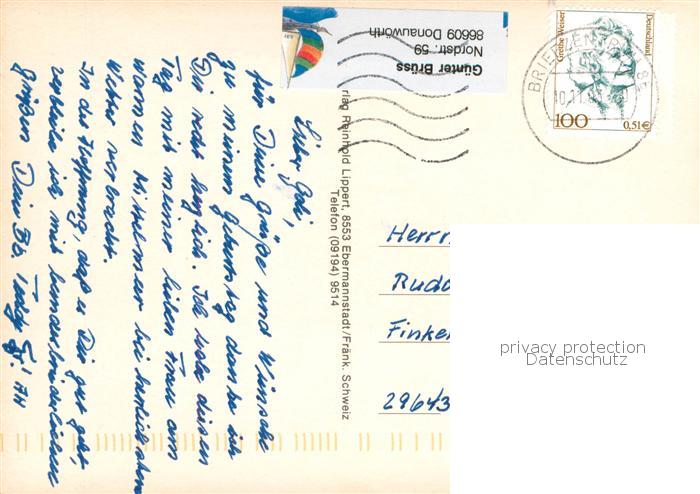 Günter Brüss
Nordstr. 59
86609 Donauwörth
Grethe Weiser
Deutschland
100
0,51€
BRIEFZENTRUM 86
10.11.
Verlag Reinhold Lippert, 8553 Ebermannstadt/Fränk. Schweiz
Telefon (09194) 9514
Lieber
für Deine Grüße und Wünsche
zu meinem Geburtstag danke ich
Dir recht herzlich. Ich habe diesen
Tag mit meiner lieben Frau am
warmen Mittelmeer bei herrlichstem
Wetter verbracht.
In der Hoffnung, daß es Dir gut geht,
verbleibe ich mit bundesbrüderlichen
Grüßen Dein Bb.
Herrn
Rudo
Finke
29643
privacy protection
Datenschutz